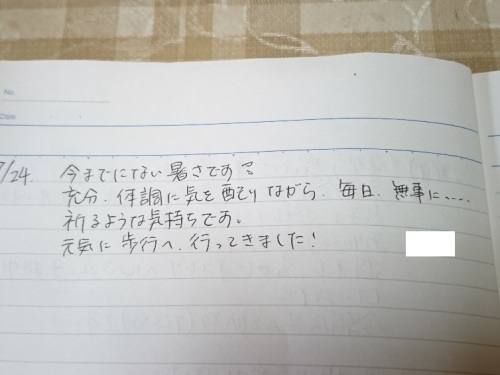 No.
Date
7/24. 今までにない暑さです
充分、体調に気を配りながら、毎日、無事に....
祈るような気持ちです。
元気に歩行へ、行ってきました!